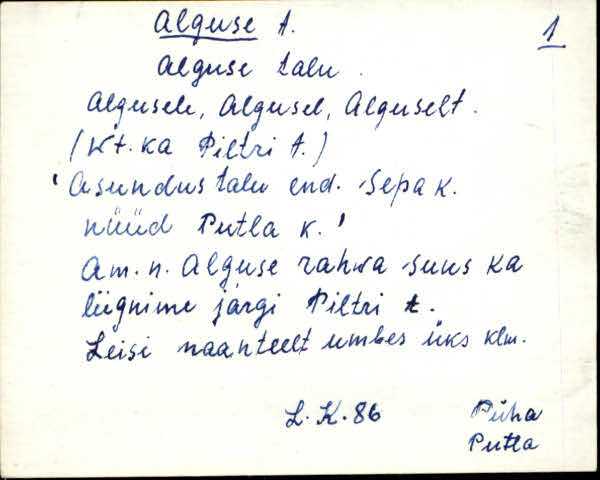 Alguse t.
1
Alguse talu.
Algusele, Algusel, Alguselt.
(Vt. ka Piltri t.)
'Asundustalu end. Sepa k.
nüüd Putla k.'
Am. n. Alguse rahva suus ka
liignime järgi Piltri t.
Leisi maanteelt umbes üks klm.
L. K. 86
Püha
Putla